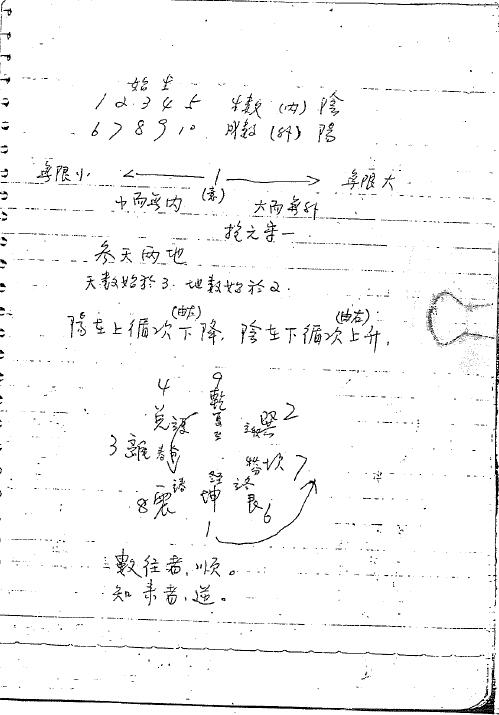 始 生
1 2 3 4 5 生數 (內) 陰
6 7 8 9 10 成數 (外) 陽
無限小 ← 1 → 無限大
小而無內 大而無外
抱元守一
參天兩地
天數始於3. 地數始於2.
(由左) (由右)
陽在上循次下降, 陰在下循次上升.
4 9
兌 乾 巽 2
3 離 坎 7
8 震 坤 艮 6
1
數往者,順。
知來者,逆。